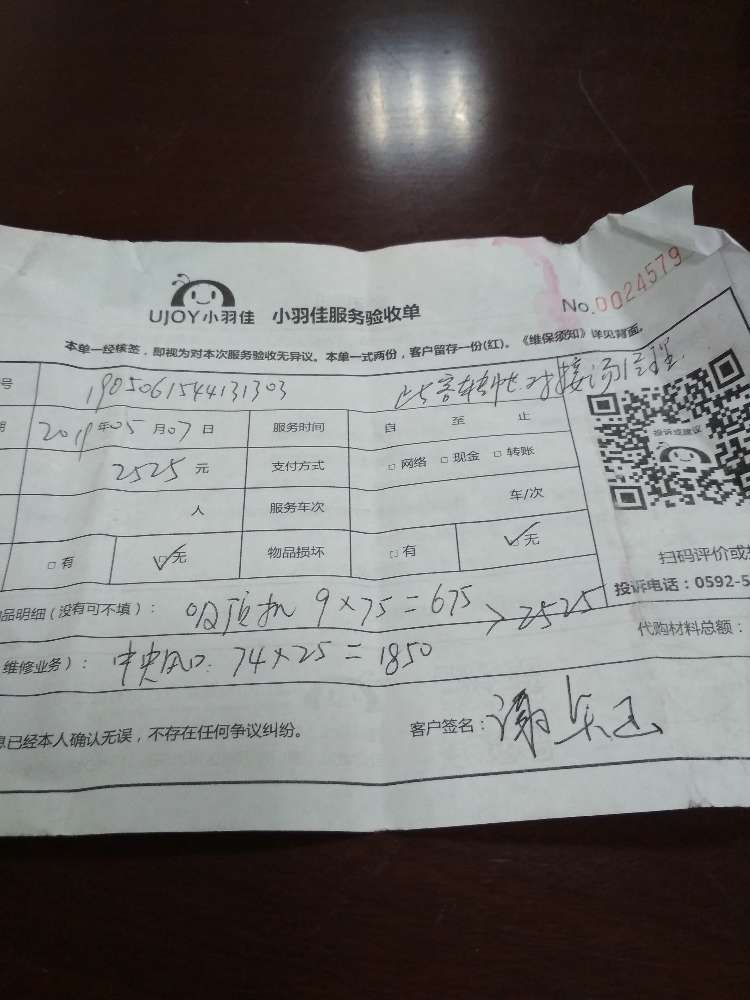 UJOY小羽佳 小羽佳服务验收单
No.0024579
本单一经核签，即视为对本次服务验收无异议。本单一式两份，客户留存一份(红)。《维保须知》详见背面。
号 1905061544131303 对接
期 2019年05月07日 服务时间 自 至 止
投诉或建议
2525元 支付方式 □网络 □现金 □转账
人 服务车次 车/次
□有 □无 物品损坏 □有 □无
扫码评价或
投诉电话：0592-5
品明细(没有可不填)： 吸顶机 9×75=675 >2525
代购材料总额：
维修业务)： 中央风口 74×25=1850
息已经本人确认无误，不存在任何争议纠纷。 客户签名：谢